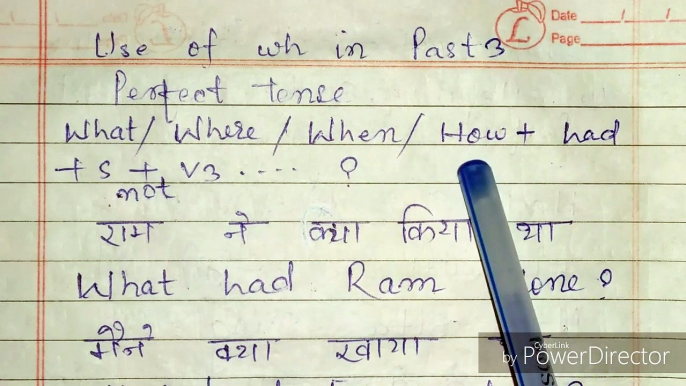 Date / /
Page
Use of wh in Past 3
Perfect tense
What/ Where / When/ How + had
+ S + V3 .... ?
not
राम ने क्या किया था
What had Ram ?
मैने क्या खाया
CyberLink
by PowerDirector